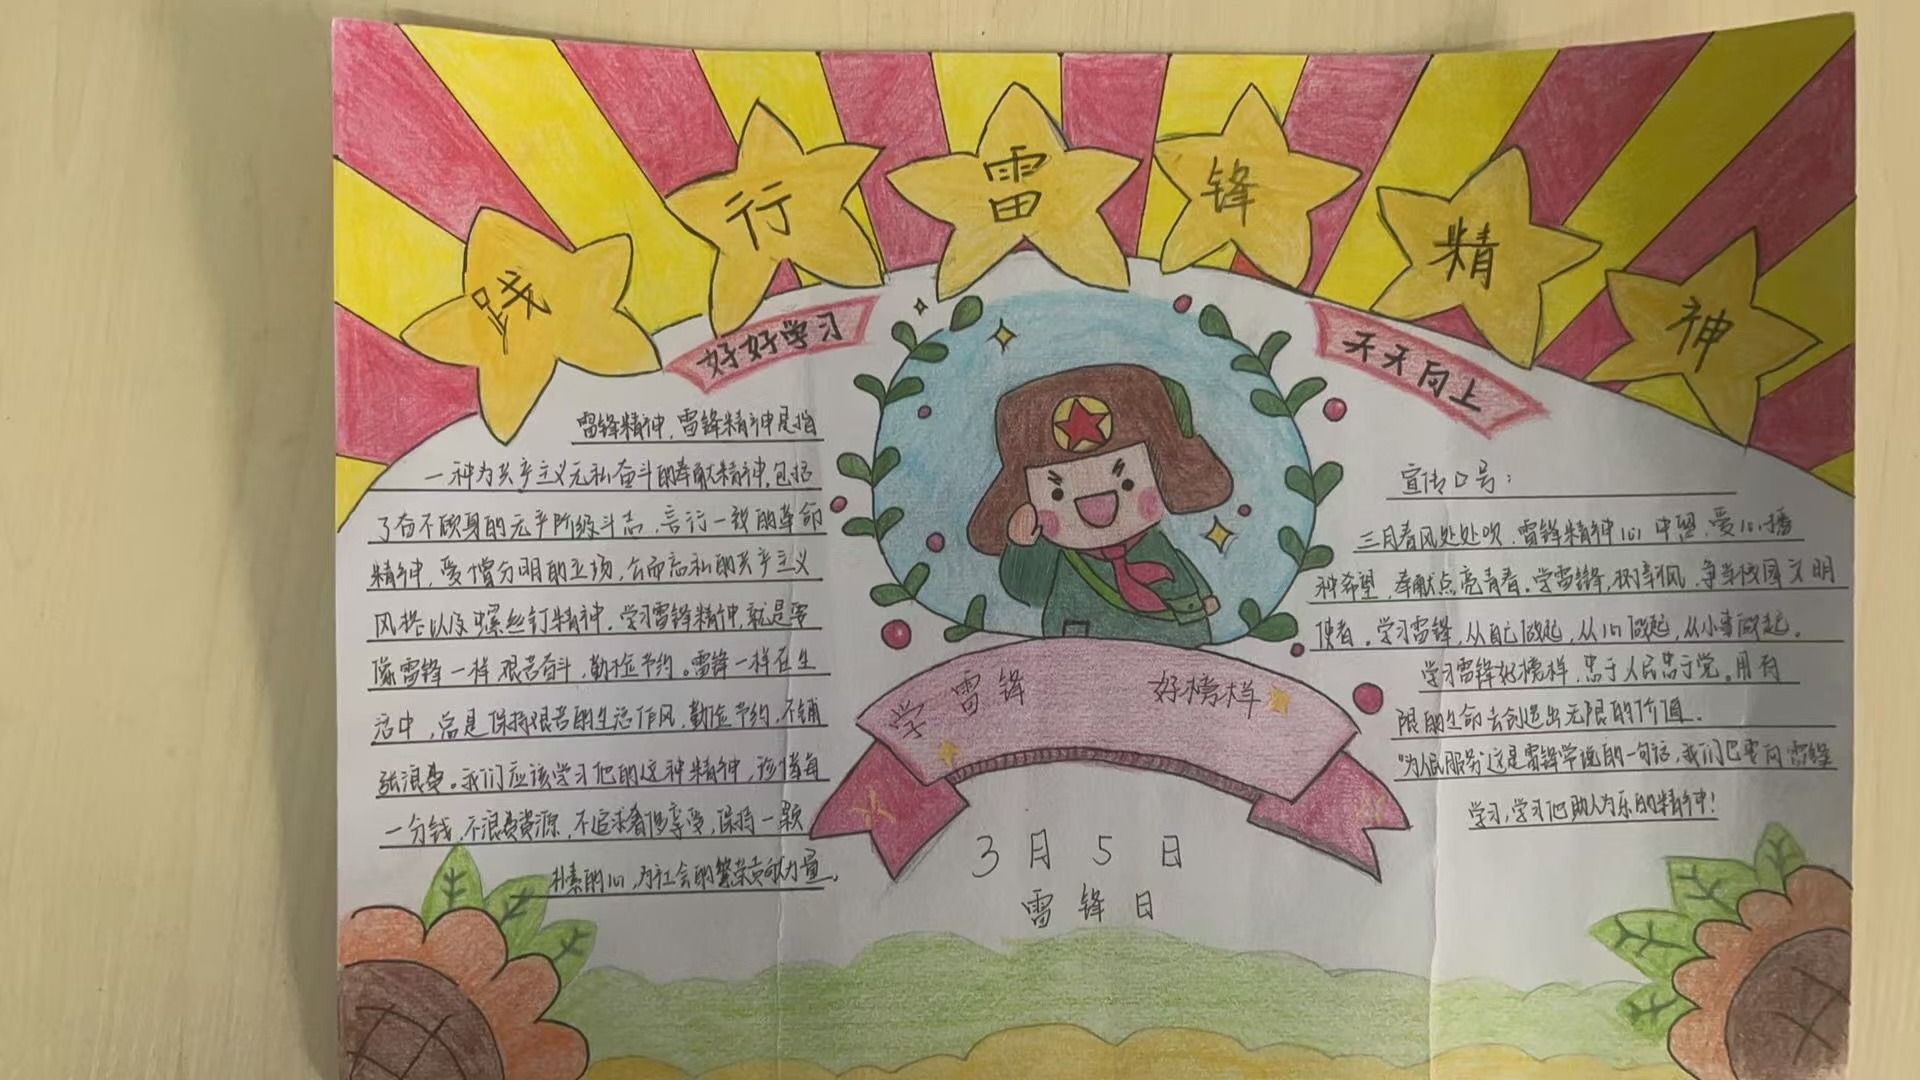 践行雷锋精神
好好学习
天天向上
雷锋精神,雷锋精神是指
一种为共产主义无私奋斗的奉献精神,包括
了奋不顾身的无产阶级斗志,言行一致的革命
精神,爱憎分明的立场,公而忘私的共产主义
风格以及螺丝钉精神。学习雷锋精神,就是要
像雷锋一样艰苦奋斗,勤俭节约。雷锋一样在生
活中,总是保持艰苦的生活作风,勤俭节约,不铺
张浪费。我们应该学习他的这种精神,珍惜每
一分钱,不浪费资源,不追求奢侈享受,保持一颗
朴素的心,为社会的繁荣贡献力量。
学雷锋 好榜样
3月5日
雷锋日
宣传口号:
三月春风处处吹,雷锋精神心中留,爱心播
种希望,奉献点亮青春。学雷锋,树新风,争当校园文明
使者。学习雷锋,从自己做起,从心做起,从小事做起。
学习雷锋好榜样,忠于人民忠于党。用有
限的生命去创造出无限的价值。
“为人民服务”这是雷锋学说的一句话,我们已要向雷锋
学习,学习他助人为乐的精神!